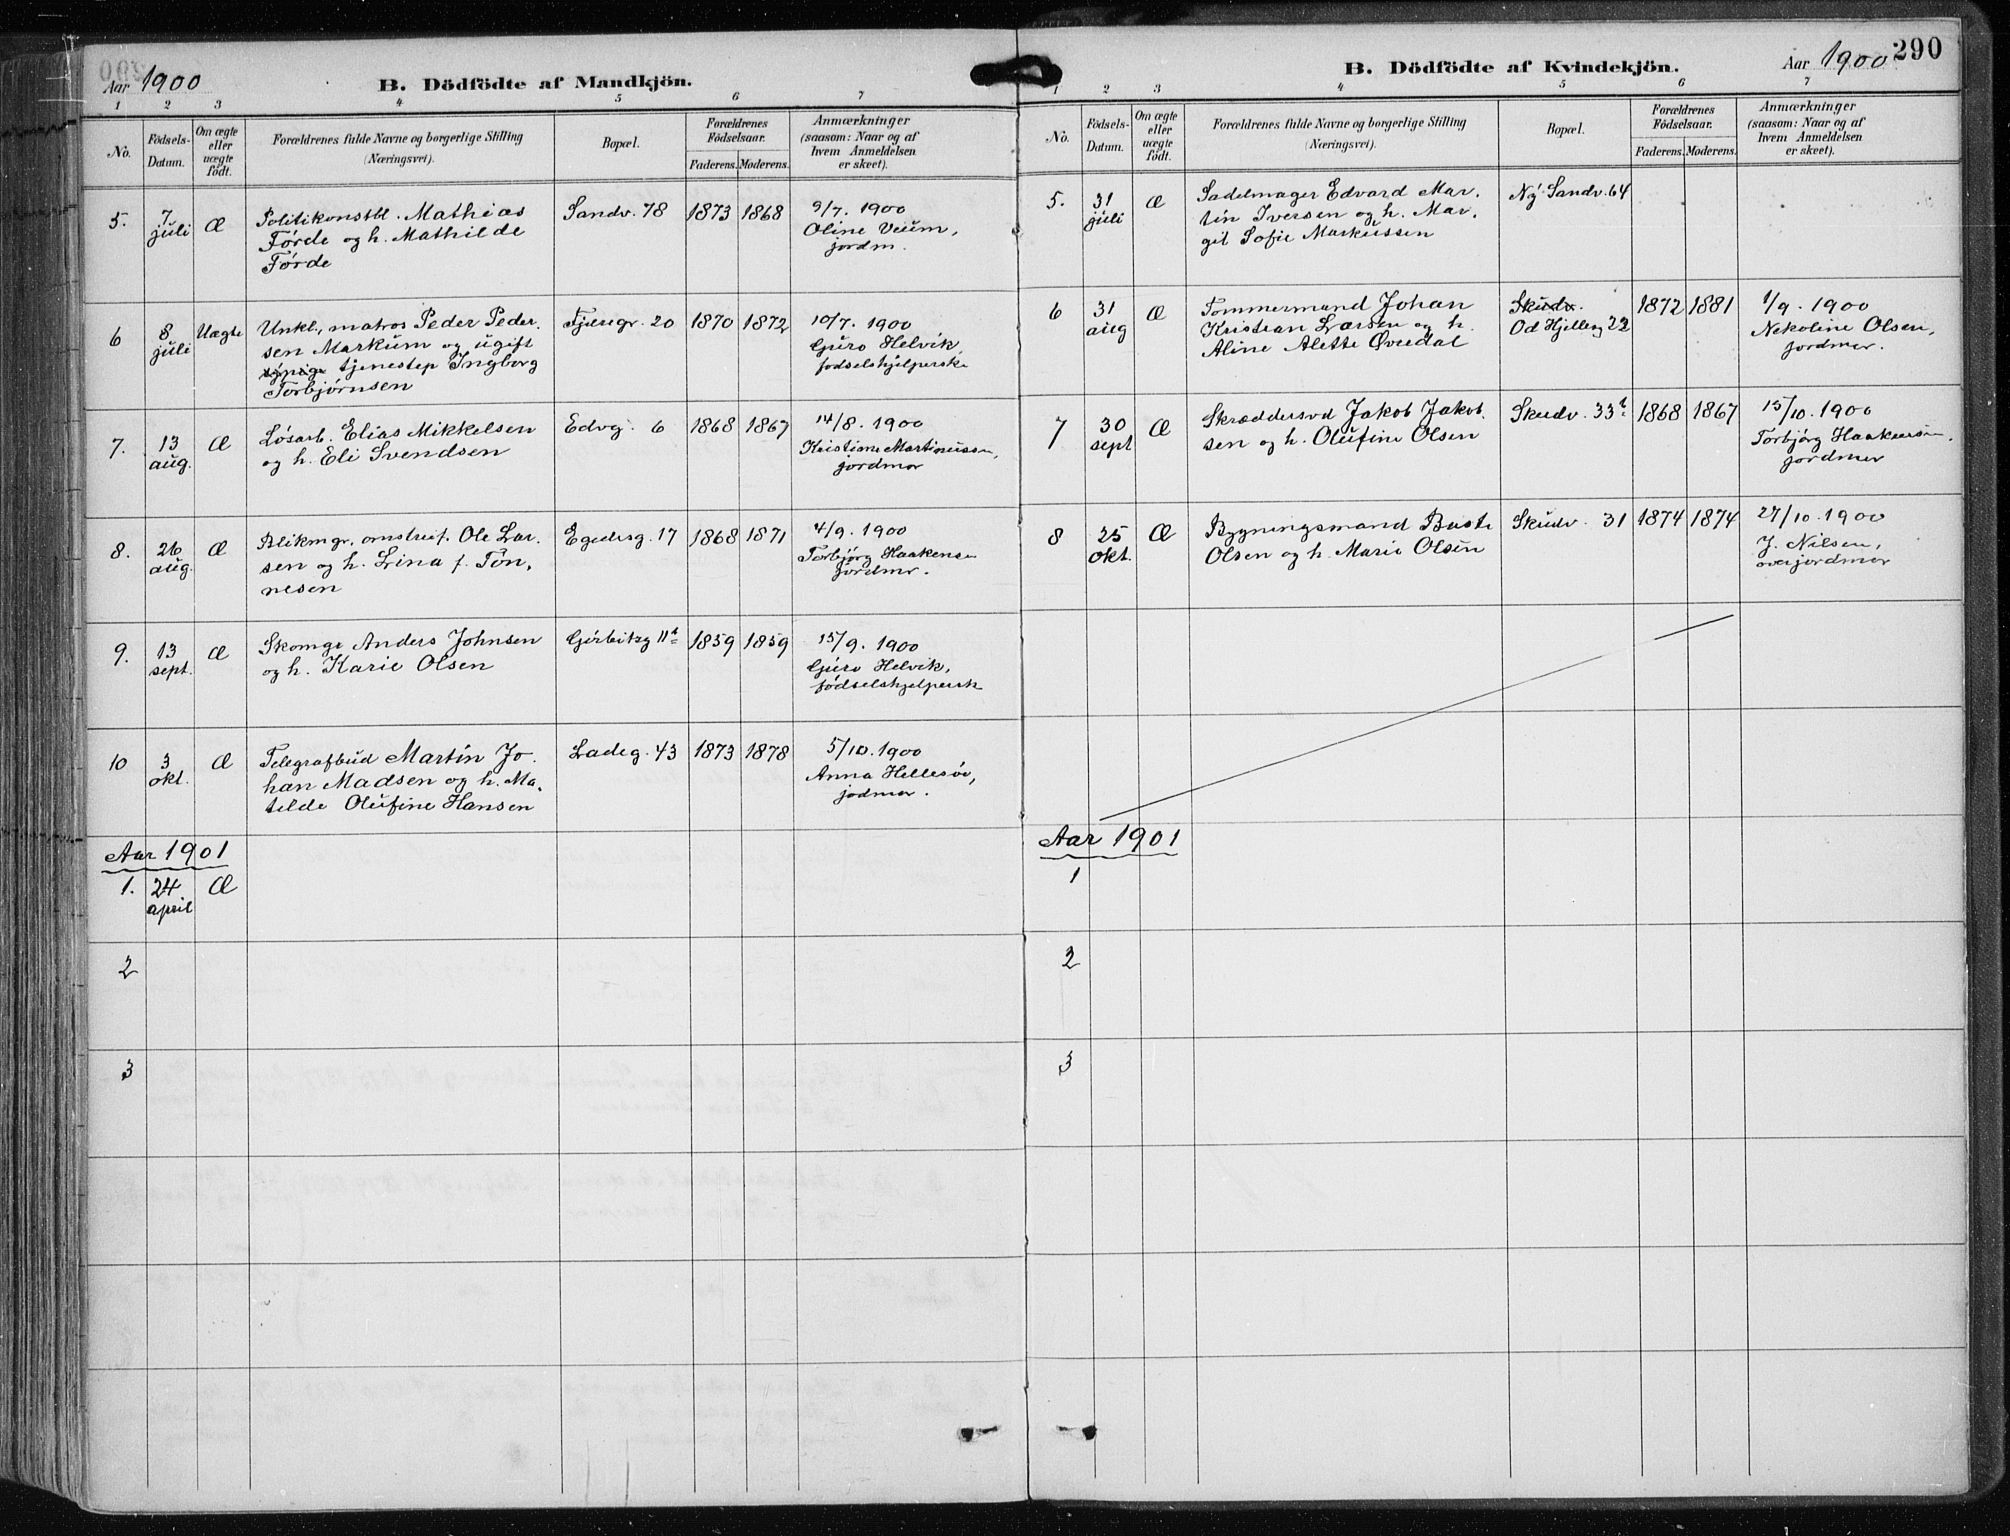 Aar 1900
B. Dödfödte af Mandkjön.
1 2 3 4 5 6 7
No.
Födsels-Datum.
Om ægte eller uægte födt.
Forældrenes fulde Navne og borgerlige Stilling
(Næringsvei).
Bopæl.
Forældrenes Födselsaar.
Faderens. Moderens.
Anmærkninger
(saasom: Naar og af
hvem Anmeldelsen
er skeet).
5. 7 juli Æ
Politikonstbl. Mathias
Førde og h. Mathilde
Førde
Sandv. 78 1873 1868
9/7. 1900
Oline Veum,
jordm.
6 8 juli Uægte
Unkl., matros Peder Peder-
sen Markum og ugift
tjenestep Ingborg
Torbjørnsen
Fjæregr. 20 1870 1872
10/7. 1900
Guro Helvik,
fodselshjelperske
7. 13 aug. Æ
Løsarb. Elias Mikkelsen
og h. Eli Svendsen
Edvg. 6 1868 1867
14/8. 1900
Kristiane Martinussen,
jordmor
8. 26 aug. Æ
Blikmgr, omstreif. Ole Lar-
sen og h. Lina f. Tøn-
nesen
Egedesg. 17 1868 1871
4/9. 1900
Torbjørg Haakense
jordmr.
9. 13 sept. Æ
Skomgr Anders Johnsen
og h. Karie Olsen
11 1859 1859
15/9. 1900
Guro Helvik,
fødselshjelpersk
10 3 okt. Æ
Telegrafbud Martin Jo-
han Madsen og h. Ma-
tilde Olufine Hansen
Ladeg. 43 1873 1878
5/10. 1900
Anna Hellesøe,
jodmor.
Aar 1901
1. 24 april Æ
2
3
290
B. Dödfödte af Kvindekjön.
Aar 1900
1 2 3 4 5 6 7
No.
Födsels-Datum.
Om ægte eller uægte födt.
Forældrenes fulde Navne og borgerlige Stilling
(Næringsvei).
Bopæl.
Forældrenes Födselsaar.
Faderens. Moderens.
Anmærkninger
(saasom: Naar og af
hvem Anmeldelsen
er skeet).
5. 31 juli Æ
Sadelmager Edvard Mar-
tin Iversen og h. Mar-
git Sofie Markussen
Ny Sandv. 64
6 31 aug Æ
Tommermand Johan
Kristian Larsen og h.
Aline Alette Øvredal
Skudv.
Od Hjelleg 22 1872 1881
1/9. 1900
Nekoline Olsen,
jordmor.
7 30 sept Æ
Skræddersvd Jakob Jakob-
sen og h. Olufine Olsen
Skudv. 33 b 1868 1867
15/10. 1900
Torbjørg Haakensen,
jordmor
8 25 okt. Æ
Bygningsmand
Olsen og h. Marie Olsen
Skudv. 31 1874 1874
27/10. 1900
J. Nilsen,
overjordmor
Aar 1901
1
2
3